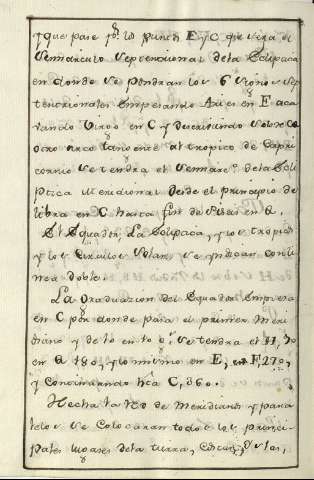 y que pase pr. los puntos E y C que sera el
Semicirculo Septentrional dela Ecliptica
en donde se pondran los 6 signos Sep
tentrionales empesando Aries en E aca
vando Virgo en C y descriviendo sobre
otro arco tangente al tropico de Capri
cornio se tendra el Semicirc.o dela Ecli
ptica Meridional desde el principio de
libra en C hasta fin de Pisis en
El Equador, La Ecliptica, y los tropicos
y los Circulos Polares se yndican con li
nea doble.
La Graduacion del Equador empiesa
en C por donde pasa el primer Meri
diano y de 10 en 10 gs. se tendra el H, 90
en 180, y lo mismo en E, en F, 270,
y Concinuando hta. C, 360.
Hecha la Red de Meridianos y para
lelos se Colocaran todos los princi
pales lugares dela tierra,